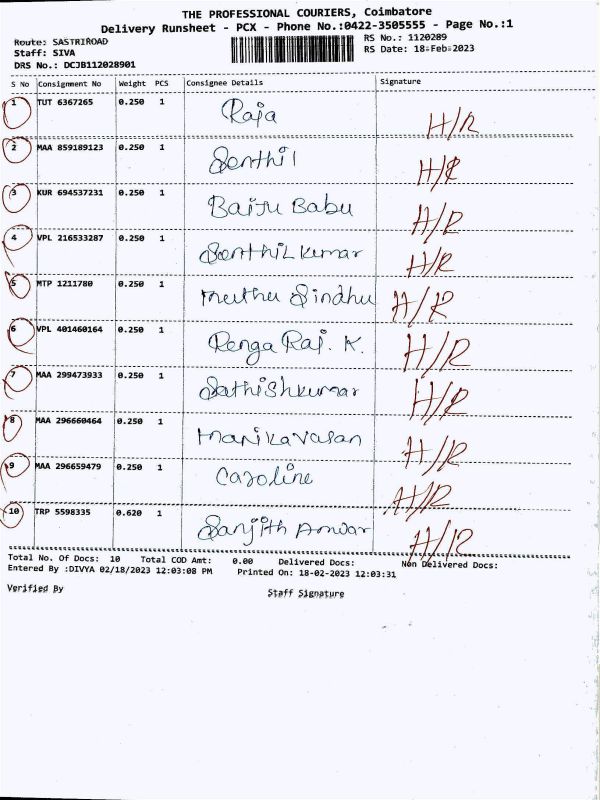 THE PROFESSIONAL COURIERS, Coimbatore
Delivery Runsheet - PCX - Phone No.:0422-3505555 - Page No.:1
Route: SASTRIROAD
RS No.: 1120289
Staff: SIVA
RS Date: 18-Feb-2023
DRS No.: DCJB112028901
S No Consignment No Weight PCS Consignee Details Signature
1 TUT 6367265 0.250 1 Raja H/R
2 MAA 859189123 0.250 1 Senthil H/R
3 KUR 694537231 0.250 1 Baiju Babu H/R
4 VPL 216533287 0.250 1 Senthil kumar H/R
5 MTP 1211780 0.250 1 muthu Sindhu H/R
6 VPL 401460164 0.250 1 Renga Raj. K. H/R
7 MAA 299473933 0.250 1 Sathishkumar H/R
8 MAA 296660464 0.250 1 manikavasan H/R
9 MAA 296659479 0.250 1 Caroline H/R
10 TRP 5598335 0.620 1 Sanjith Anwar H/R
Total No. Of Docs: 10 Total COD Amt: 0.00 Delivered Docs: Non Delivered Docs:
Entered By :DIVYA 02/18/2023 12:03:08 PM Printed On: 18-02-2023 12:03:31
Verified By Staff Signature